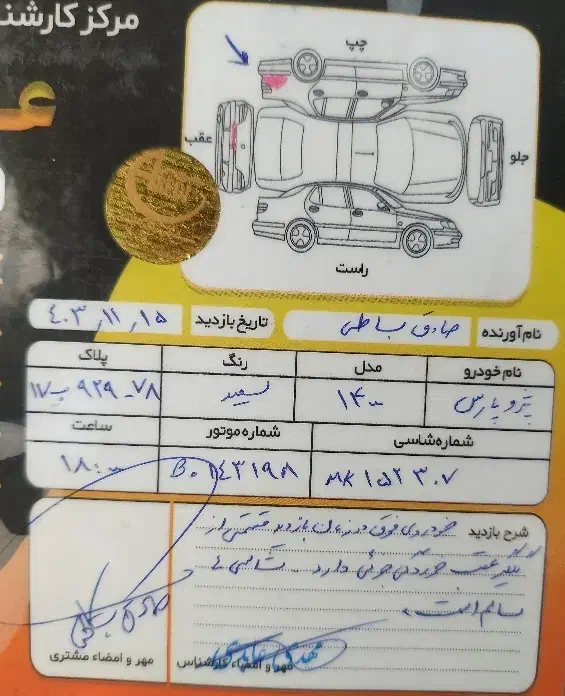 مرکز کارشنا
چپ
عقب
جلو
راست
نام آورنده صادق بساطی تاریخ بازدید ۴۰۳٫۱۱٫۱۵
نام خودرو مدل رنگ پلاک
پژو پارس ۱۴۰۰ سفید ۷۸-۹۲۹ ب ۱۷
شماره شاسی شماره موتور ساعت
۱۸:۰۰
شرح بازدید خودروی فوق در زمان بازدید قسمتی از
گلگیر عقب خوردگی جزئی دارد. شاسی ها
سالم است.
مهر و امضاء کارشناس
مهر و امضاء مشتری